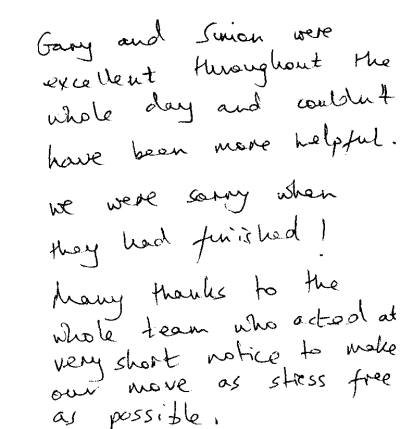 Gary and Simon were
excellent throughout the
whole day and couldn't
have been more helpful.
we were sorry when
they had finished!
Many thanks to the
whole team who acted at
very short notice to make
our move as stress free
as possible.